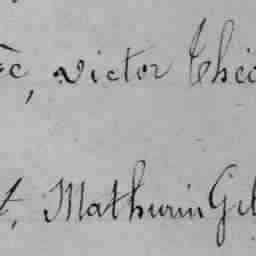 c, Victor Théo
t, Mathurin Gil